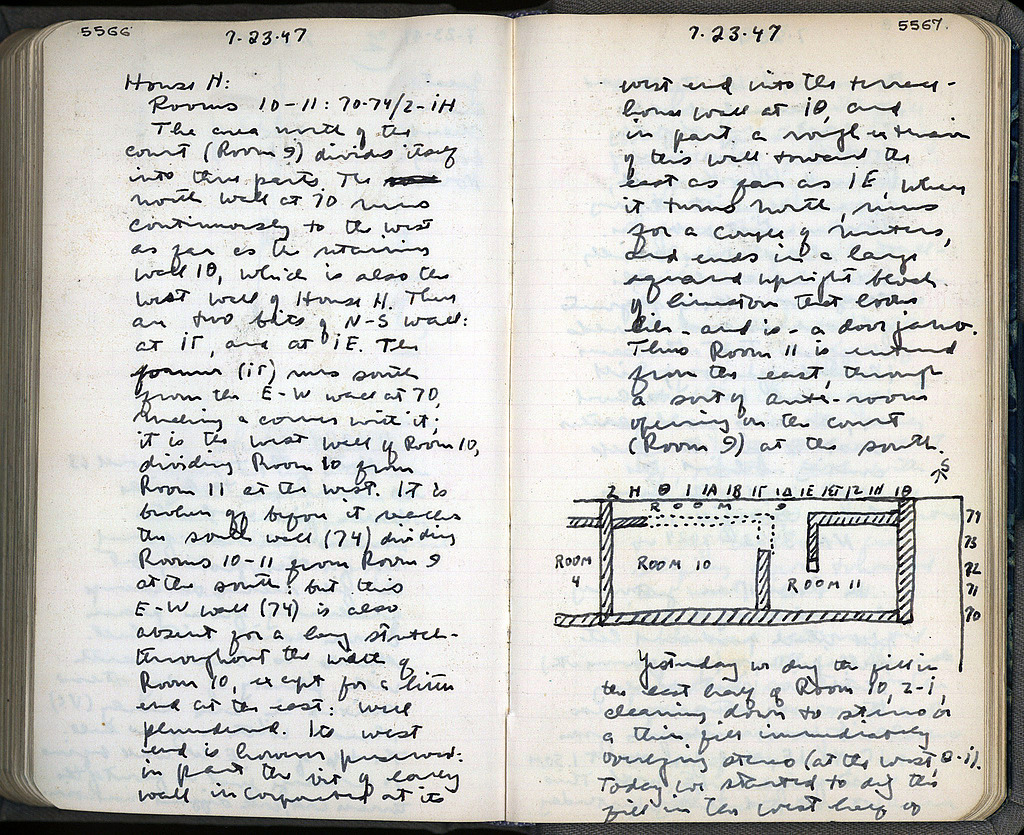 5566
7·23·47
House H:
Rooms 10-11: 70-74/Ζ-ΙΗ
The area north of the
court (Room 9) divides itself
into three parts. The
north wall at 70 runs
continuously to the west
as far as the retaining
wall ΙΘ, which is also the
west wall of House H. There
are two bits of N-S wall:
at ΙΓ, and at ΙΕ. The
former (ΙΓ) runs south
from the E-W wall at 70,
making a corner with it;
it is the west wall of Room 10,
dividing Room 10 from
Room 11 at the west. It is
broken off before it reaches
the south wall (74) dividing
Rooms 10-11 from Room 9
at the south: but this
E-W wall (74) is also
absent for a long stretch-
throughout the width of
Room 10, except for a little
end at the east: well
plundered. Its west
end is however preserved:
in part the bit of early
wall incorporated at its
5567.
7·23·47
west end into the terrace-
house wall at ΙΘ, and
in part a rough extension
of this wall toward the
east as far as ΙΕ, where
it turns north, runs
for a couple of meters,
and ends in a large
squared upright block
of limestone that looks
like - and is - a door jamb.
Thus Room 11 is entered
from the east, through
a sort of ante-room
opening on the court
(Room 9) at the south.
S
Ζ Η Θ Ι ΙΑ ΙΒ ΙΓ ΙΔ ΙΕ ΙΣΤ ΙΖ ΙΗ ΙΘ
ROOM 9
74
73
ROOM 4
ROOM 10
72
ROOM 11
71
70
Yesterday we dug the fill in
the east half of Room 10, Ζ-Ι,
cleaning down to stereo or
a thin fill immediately
overlying stereo (at the west Θ-Ι).
Today we started to dig the
fill in the west half of